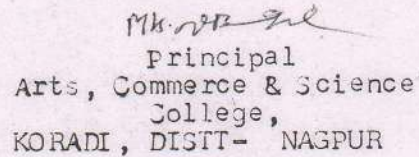 Principal
Arts, Commerce & Science
College,
KORADI, DISTT- NAGPUR